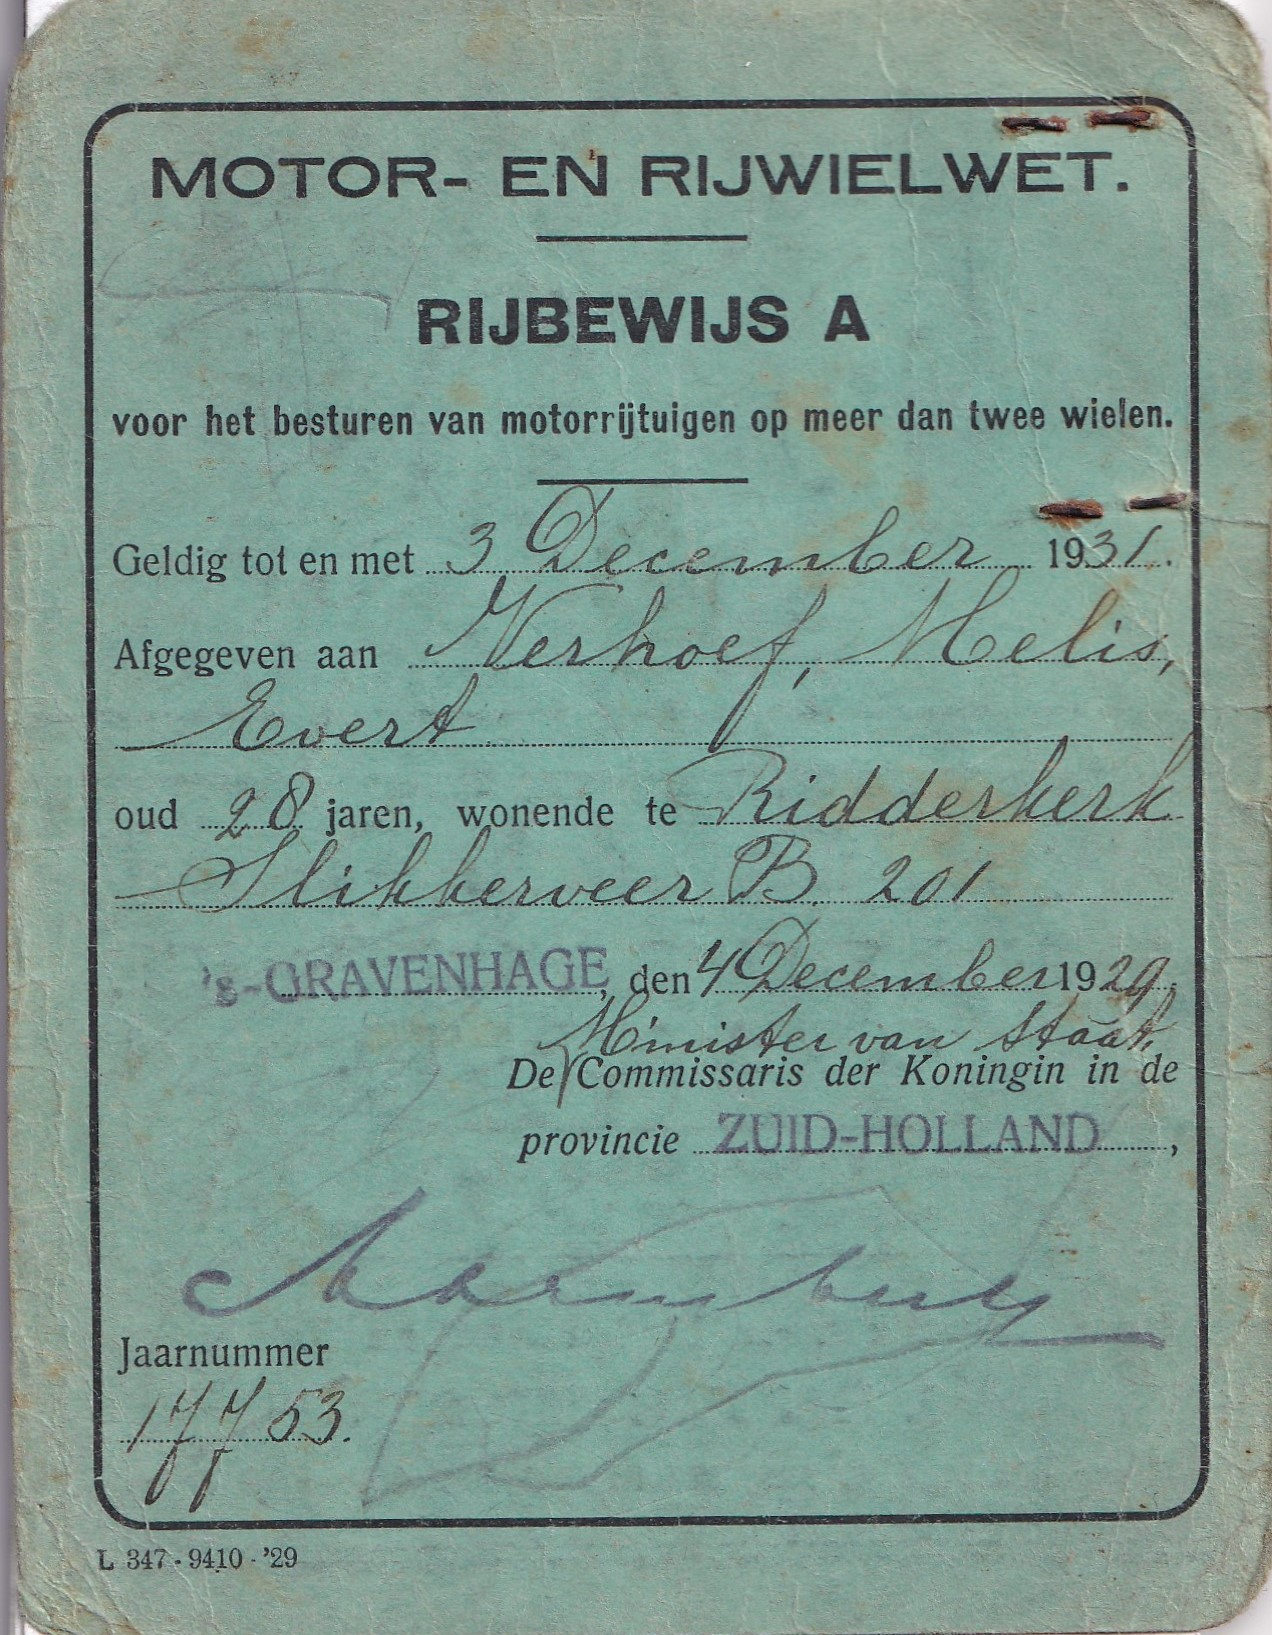 MOTOR- EN RIJWIELWET.
RIJBEWIJS A
voor het besturen van motorrijtuigen op meer dan twee wielen.
Geldig tot en met 3 December 1931.
Afgegeven aan Verhoef, Melis,
Evert
oud 28 jaren, wonende te Ridderkerk
Slikkerveer B. 201
's-GRAVENHAGE, den 4 December 1929.
Minister van Staat,
De Commissaris der Koningin in de
provincie ZUID-HOLLAND,
Jaarnummer
17753.
L 347 - 9410 - '29